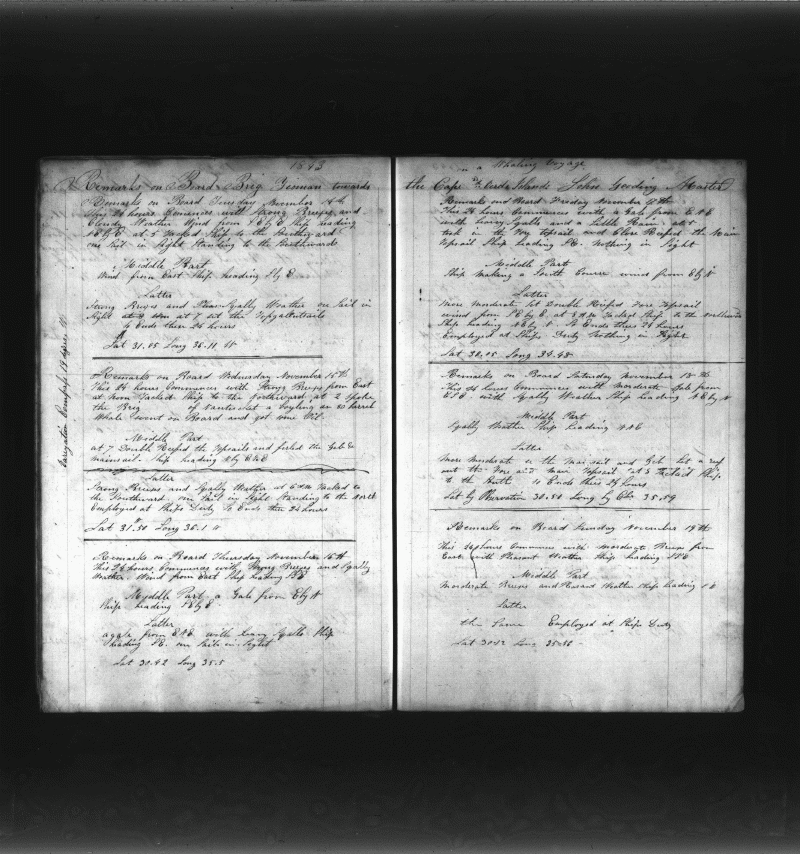 1843
Remarks on Board Brig towards
Remarks on Board Tuesday November 14th
This 24 hours Comences with Strong Breezes and
Cloudy Weather Wind from E Ship heading
at 5 Tacked Ship to the Southward
one Sail in Sight Standing to the Northward
Middle Part
Wind from East Ship heading S by E
Latter
Strong Breezes and Squally Weather one Sail in
Sight at 7 set the Topgallantsails
So Ends these 24 hours
Lat 31.05 Long 36.11 W
Remarks on Board Wednesday November 15th
This 24 hours Commences with Strong Breezes from East
at Noon Tacked Ship to the Northward at 2 spoke
the Brig of Nantucket a boyling an 80 barrel
Whale went on Board and got some Oil
Middle Part
at 7 Double Reefed the Topsails and furled the Jib &
mainsail Ship heading N by E
Latter
Strong Breezes and Squally Weather at 6 AM Tacked to
the Southward one Sail in Sight Standing to the North
Employed at Ships Duty So Ends these 24 hours
Lat 31.50 Long 36.1 W
Remarks on Board Thursday November 16th
This 24 hours Commences with Strong Breezes and Squally
Weather Wind from East Ship heading
Middle Part a Gale from E by N
Ship heading S E by S
Latter
a gale from ENE with heavy Squalls Ship
heading SE one Sail in Sight
Lat 30.42 Long 35.5
Varyation Compass 12 degrees W
on a Whaling Voyage
the Cape De Verds Islands John Master
Remarks on Board Friday November 17th
This 24 hours Commences with a Gale from ENE
with heavy Squalls and a Little Rain at 5
took in the Fore topsail and Close Reefed the Main
Topsail Ship heading SE Nothing in Sight
Middle Part
Ship Making a South Course wind from E by N
Latter
More Moderate Set Double Reefed Fore Topsail
wind from E by E at 8 A.M Tacked Ship to the northward
Ship heading N E by N So Ends these 24 hours
Employed at Ships Duty Nothing in Sight
Lat 30.05 Long 34.48
Remarks on Board Saturday November 18th
This 24 hours Commences with moderate Gale from
ESE with Squally Weather Ship heading N E by N
Middle Part
Squally Weather Ship heading NNE
Latter
More Moderate set the Mainsail and Jib let a reef
out the Fore and Main Topsail at 3 Tacked Ship
to the South So Ends these 24 hours
Lat by Observation 30.51 Long by Chr 35.59
Remarks on Board Sunday November 19th
This 24 hours Commences with Moderate Breezes from
East with Pleasant Weather Ship heading SSE
Middle Part
Moderate Breezes and Pleasant Weather Ship heading SE
Latter
the Same Employed at Ships Duty
Lat Long